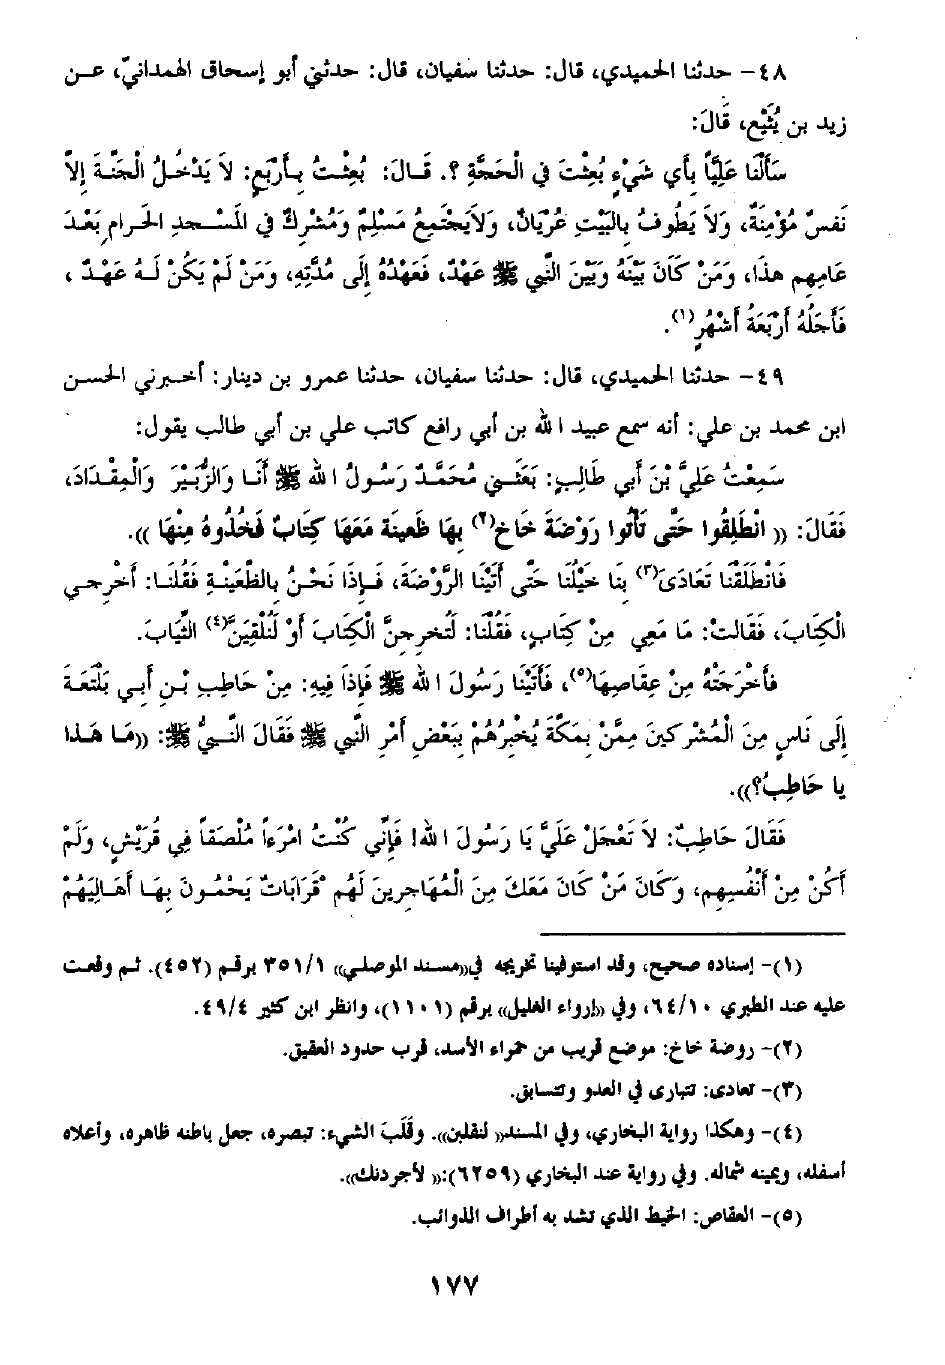 ٤٨- حدثنا الحميدي، قال: حدثنا سفيان، قال: حدثني أبو إسحاق الهمدانيّ، عـن
زيد بن يُثَيْع، قَالَ:
سَأَلْنَا عَلِيَّاً بأَي شَيْءٍ بُعِثْتَ فِي الْحَجَّةِ ؟. قَـالَ: بُعِثْـتُ بِـأَرْبَعٍ: لاَ يَدْخُـلُ الْجَنَّـةَ إِلاَّ
نَفسٌ مُؤْمِنَةٌ، وَلاَ يَطُوفُ بِالبَيْتِ عُرْيَانٌ، وَلاَيَجْتَمِعُ مَسْلِمٌ وَمُشْرِكٌ فِي المَسْـجدِ الحَرامِ بَعْـدَ
عَامِهِم هذَا، وَمَنْ كَانَ بَيْنَهُ وَبَيْنَ النَّبِي ﷺ عَهْدٌ، فَعَهْدُهُ إِلَى مُدَّتِهِ، وَمَنْ لَمْ يَكُنْ لَـهُ عَهْـدٌ ،
فَأَجَلُهُ أَرْبَعَةُ أَشْهُرٍ(١).
٤٩- حدثنا الحميدي، قال: حدثنا سفيان، حدثنا عمرو بن دينار: أخـبرني الحسـن
ابن محمد بن علي: أنه سمع عبيد الله بن أبي رافع كاتب علي بن أبي طالب يقول:
سَمِعْتُ عَلِيَّ بْنَ أَبي طَالِبٍ: بَعَثَنِـي مُحَمَّدٌ رَسُولُ الله ﷺ أَنَـا وَالزُّبَيْرَ وَالْمِقْدَادَ،
فَقَالَ: (( انْطَلِقُوا حَتَّى تَأْتُوا رَوْضَةَ خَاخٍ(٢) بِهَا ظَعِينَة مَعَهَا كِتَابٌ فَخُذُوهُ مِنْهَا )).
فَانْطَلَقْنَا تَعَادَى(٣) بِنَا خَيْلُنَا حَتَّى أَتَيْنَا الرَّوْضَةَ، فَـإِذَا نَحْـنُ بِالظَّعِينَـةِ فَقُلْنَـا: أَخْرِجـي
الْكِتَابَ، فَقَالَتْ: مَا مَعِي مِنْ كِتَابٍ، فَقُلْنَا: لَتُخرِجِنَّ الْكِتَابَ أَوْ لَنُلْقِيَنَّ(٤) الثِّيَابَ.
فَأَخْرَجَتْهُ مِنْ عِقَاصِهَا(٥)، فَأَتَيْنَا رَسُولَ الله ﷺ فَإِذَا فِيهِ: مِنْ حَاطِبِ بْـنِ أَبـي بَلْتَعَـةَ
إِلَى نَاسٍ مِنَ الْمُشْرِكينَ مِمَّنْ بَمَكَّةَ يُخْبِرُهُمْ بِبَعْضِ أَمْرِ النَّبِي ﷺ فَقَالَ النَّـبِيُّ ﷺ: ((مَـا هَـذَا
يا حَاطِبُ؟)).
فَقَالَ حَاطِبٌ: لاَ تَعْجَلْ عَلَيَّ يَا رَسُولَ الله! فَإِنِّي كُنْتُ امْرَءَاً مُلْصَقَاً فِي قُرَيْشٍ، وَلَمْ
أَكُنْ مِنْ أَنْفُسِهِم، وَكَانَ مَنْ كَانَ مَعَكَ مِنَ الْمُهَاجِرِينَ لَهُم قَرَابَاتٌ يَحْمُونَ بِهَـا أَهَـالِيَهُمْ
(١)- إسناده صحيح، وقد استوفينا تخريجه في((مسند الموصلي)) ٣٥١/١ برقـم (٤٥٢). ثـم وقعـت
عليه عند الطبري ٦٤/١٠، وفي ((إرواء الغليل)) برقم (١١٠١)، وانظر ابن كثير ٤٩/٤.
(٢)- روضة خاخ: موضع قريب من حمراء الأسد، قرب حدود العقيق.
(٣)- تعادى: تتبارى في العدو وتتسابق.
(٤)- وهكذا رواية البخاري، وفي المسند(( لنقلبن)). وقَلَبَ الشيء: تبصره، جعل باطنه ظاهره، وأعلاه
أسفله، ويمينه شماله. وفي رواية عند البخاري (٦٢٥٩):(( لأجردنك)).
(٥)- العقاص: الخيط الذي تشد به أطراف الذوائب.
١٧٧